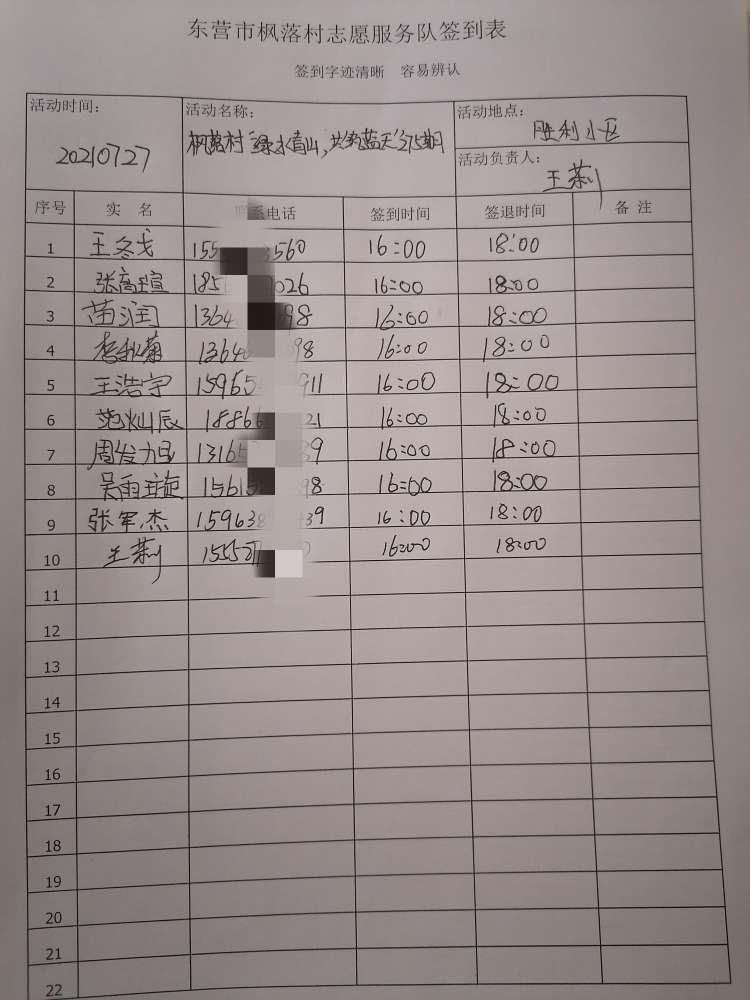 东营市枫落村志愿服务队签到表
签到字迹清晰 容易辨认
活动时间: 活动名称: 活动地点:
20210727 枫落村“绿水青山,共筑蓝天”175期 胜利小区
活动负责人:
王莉
序号 实 名 电话 签到时间 签退时间 备 注
1 王冬戈 155 560 16:00 18:00
2 张高瑄 185 026 16:00 18:00
3 苗润 1364 98 16:00 18:00
4 李秋菊 1364 98 16:00 18:00
5 王浩宇 15965 911 16:00 18:00
6 范灿辰 1886 21 16:00 18:00
7 周发旭 13165 9 16:00 18:00
8 吴雨璇 1561 98 16:00 18:00
9 张军杰 159638 39 16:00 18:00
10 王莉 1555 16:00 18:00
11
12
13
14
15
16
17
18
19
20
21
22